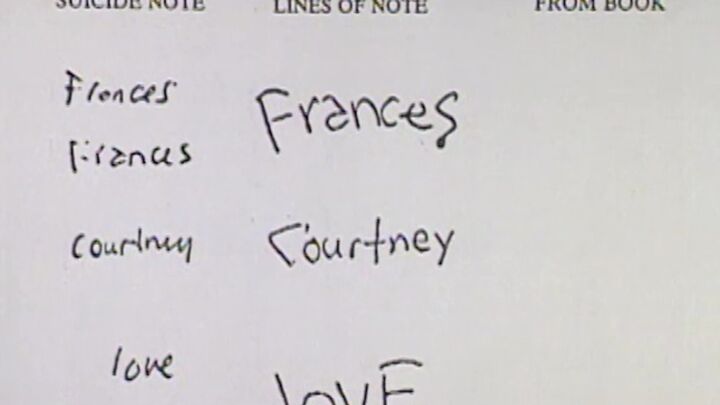 SUICIDE NOTE LINES OF NOTE FROM BOOK
Frances Frances
Frances
Courtney Courtney
love lovE